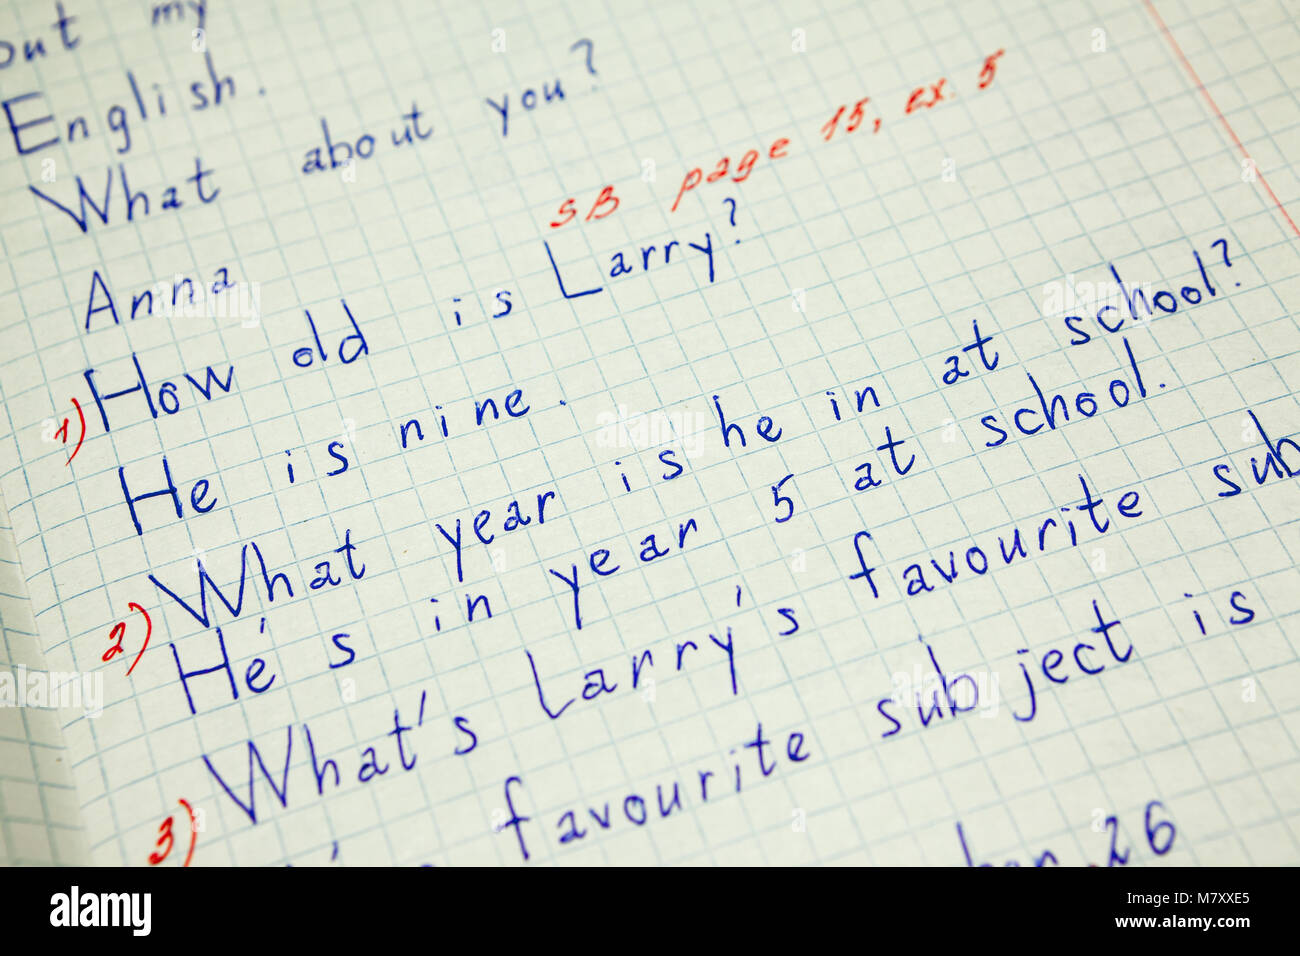 out my
English.
What about you?
SB page 15, ex. 5
Anna
1) How old is Larry?
He is nine.
2) What year is he in at school?
He's in year 5 at school.
3) What's Larry's favourite sub
favourite subject is
26
alamy
www.alamy.com
Image ID: M7XXE5